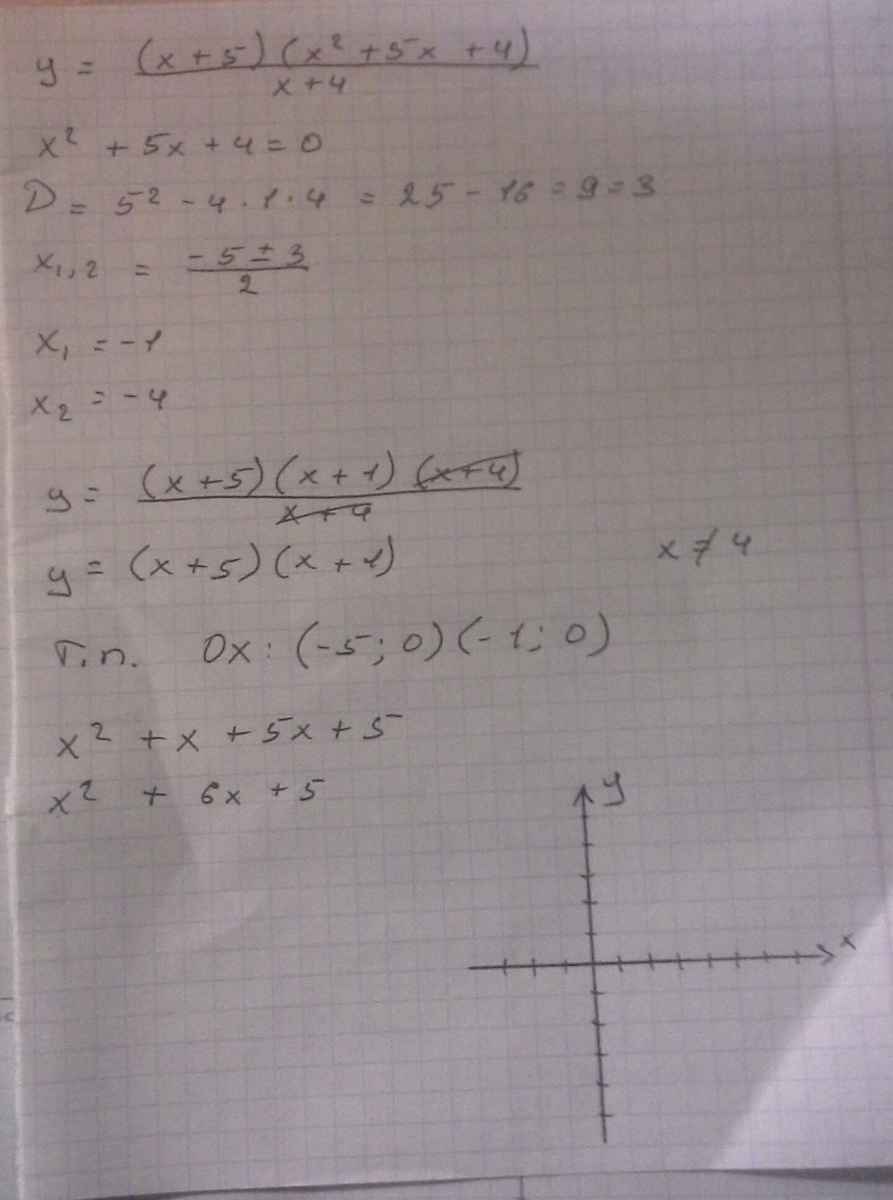 y = (x + 5) (x² + 5x + 4) / x + 4
x² + 5x + 4 = 0
D = 5² - 4 · 1 · 4 = 25 - 16 = 9 = 3
x₁,₂ = - 5 ± 3 / 2
x₁ = - 1
x₂ = - 4
y = (x + 5) (x + 1) (x + 4) / x + 4
y = (x + 5) (x + 1) x ≠ 4
Т.п. Ox: (-5; 0) (-1; 0)
x² + x + 5x + 5
x² + 6x + 5
y
x